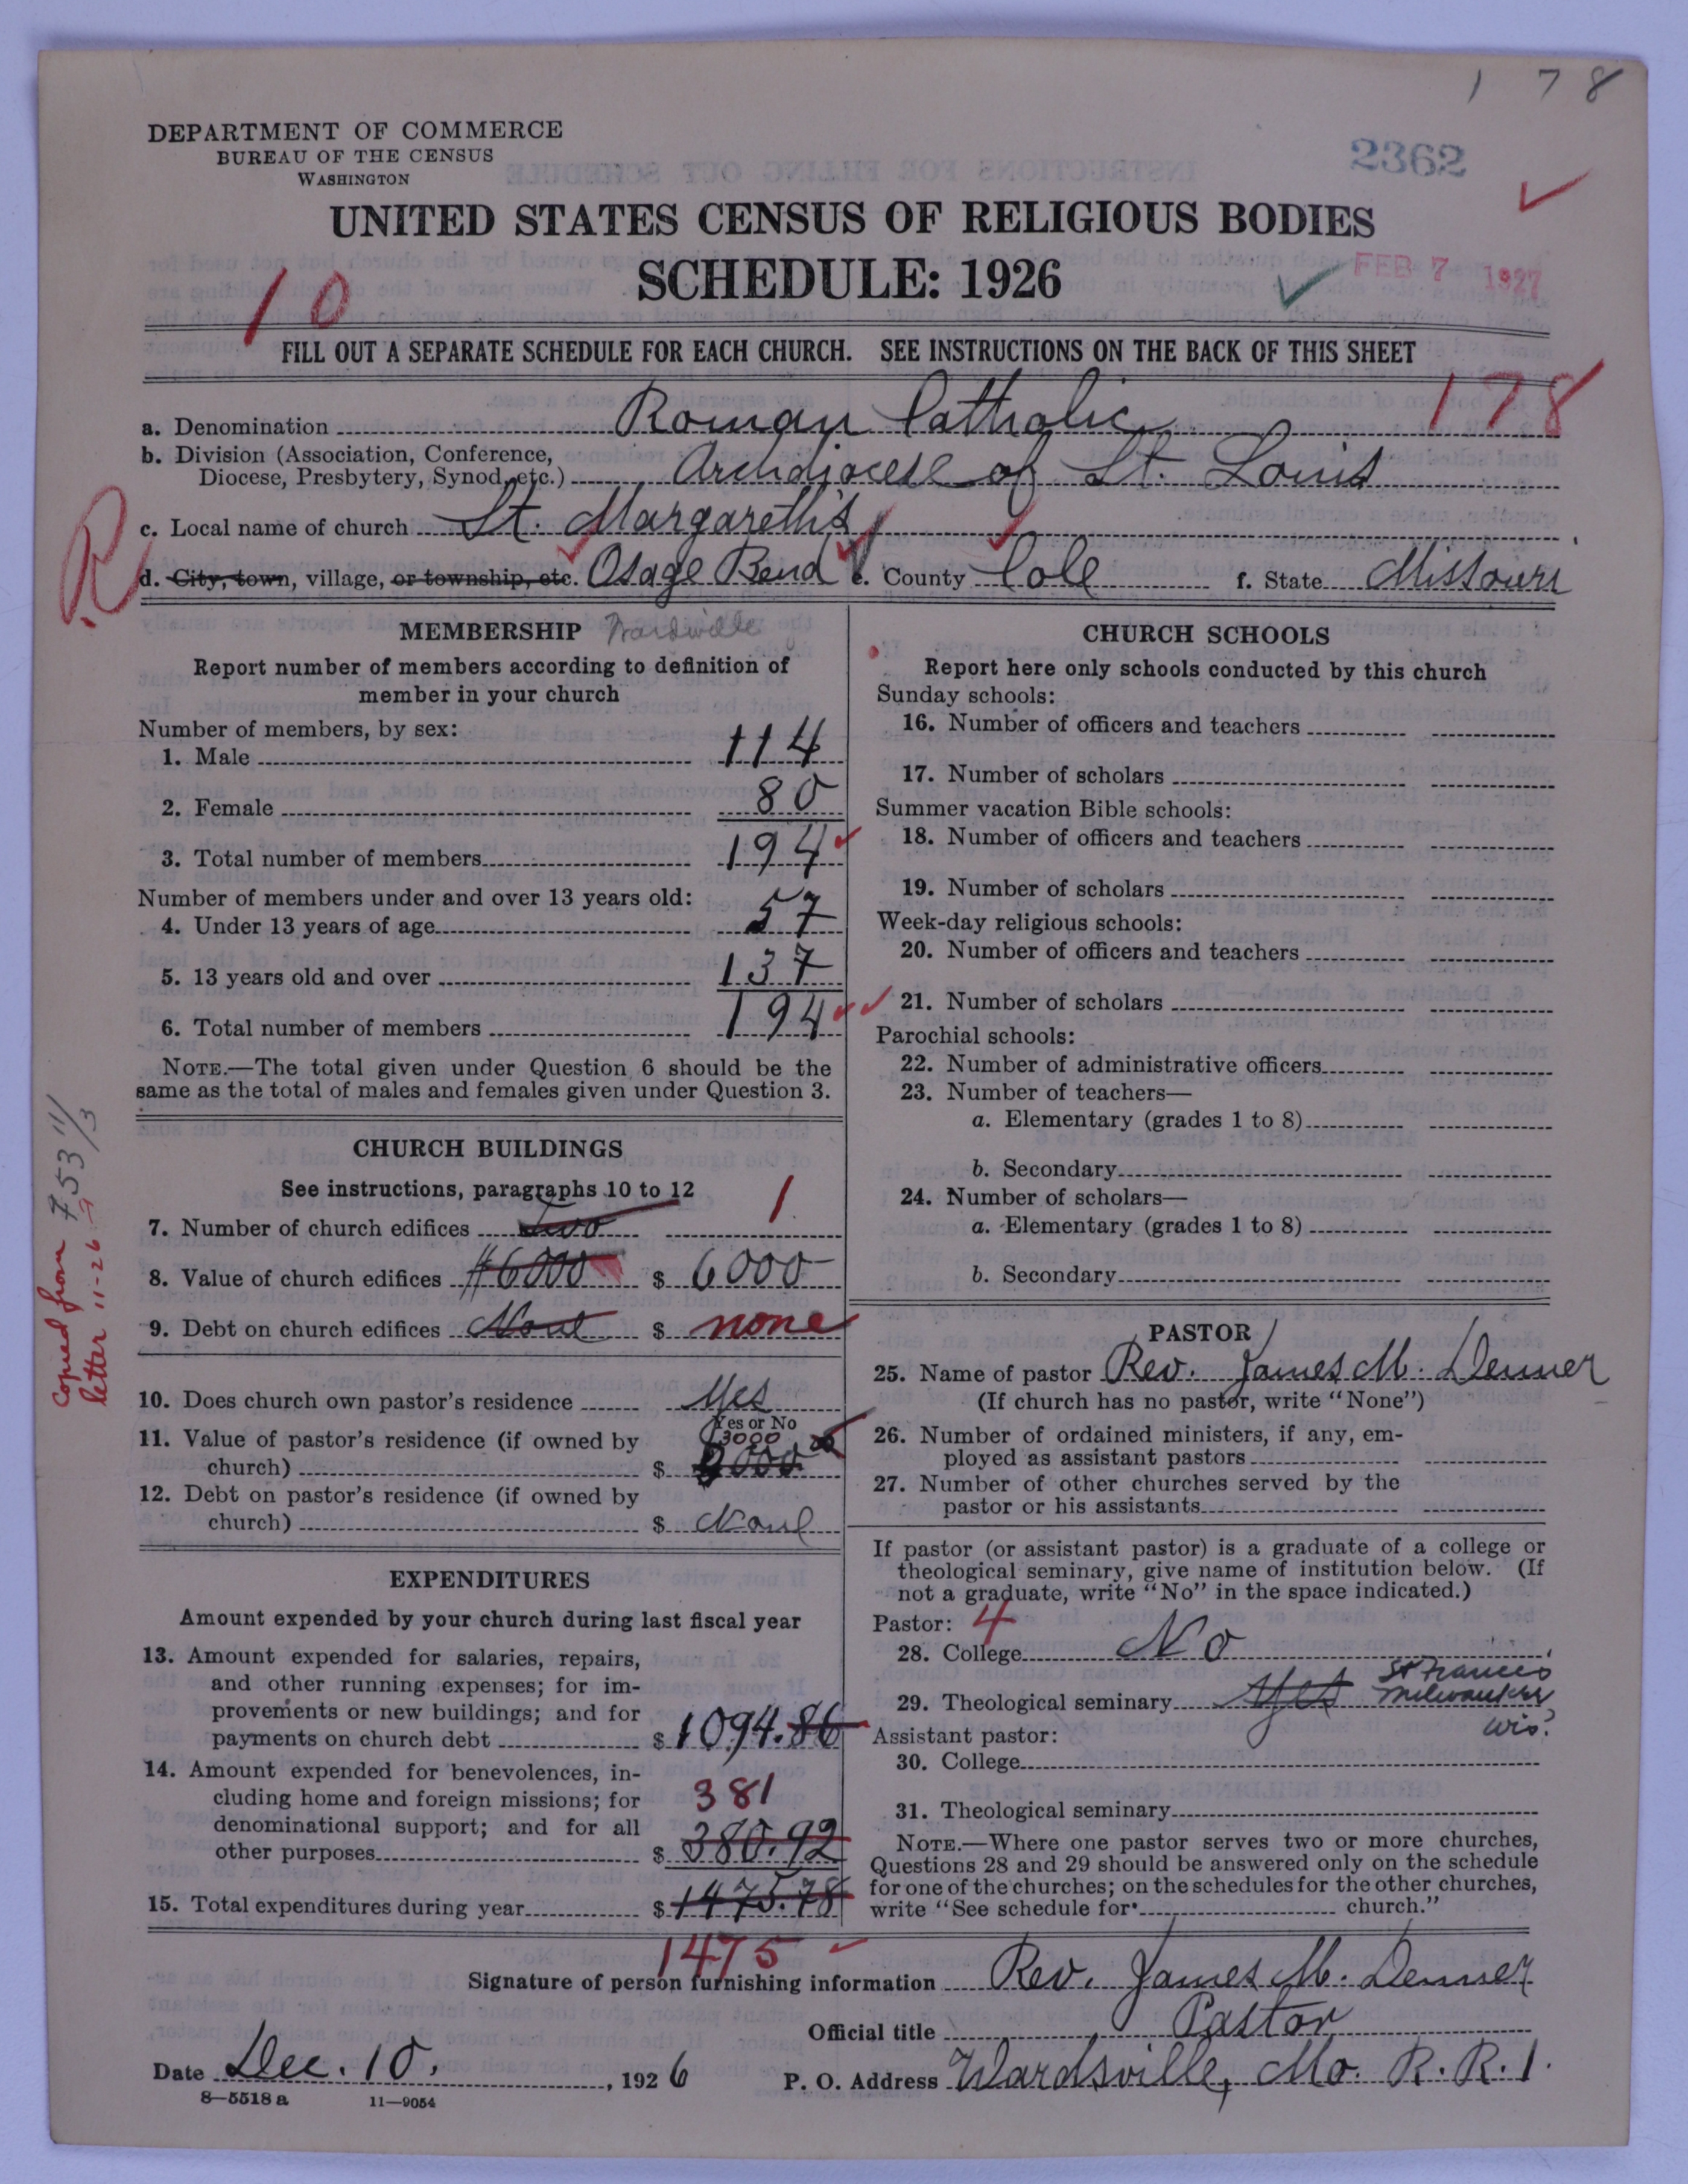 1 7 8
DEPARTMENT OF COMMERCE
BUREAU OF THE CENSUS
WASHINGTON
2362
UNITED STATES CENSUS OF RELIGIOUS BODIES
SCHEDULE: 1926
FEB 7 1927
10
FILL OUT A SEPARATE SCHEDULE FOR EACH CHURCH. SEE INSTRUCTIONS ON THE BACK OF THIS SHEET
178
a. Denomination Roman Catholic
b. Division (Association, Conference, Diocese, Presbytery, Synod, etc.) Archdiocese of St. Louis
c. Local name of church St. Margareth's
R
d. City, town, village, or township, etc. Osage Bend e. County Cole f. State Missouri
MEMBERSHIP Wardsville
Report number of members according to definition of
member in your church
Number of members, by sex:
1. Male 114
2. Female 80
3. Total number of members 194
Number of members under and over 13 years old:
4. Under 13 years of age 57
5. 13 years old and over 137
6. Total number of members 194
NOTE.—The total given under Question 6 should be the
same as the total of males and females given under Question 3.
CHURCH BUILDINGS
See instructions, paragraphs 10 to 12
7. Number of church edifices Two 1
8. Value of church edifices #6000 $ 6000
9. Debt on church edifices None $ none
10. Does church own pastor's residence Yes
Yes or No
11. Value of pastor's residence (if owned by
church) $ 3000
12. Debt on pastor's residence (if owned by
church) $ None
copied from 753 11/3
letter 11-26-
EXPENDITURES
Amount expended by your church during last fiscal year
13. Amount expended for salaries, repairs,
and other running expenses; for im-
provements or new buildings; and for
payments on church debt $ 1094.86
14. Amount expended for benevolences, in-
cluding home and foreign missions; for 381
denominational support; and for all
other purposes $ 380.92
15. Total expenditures during year $ 1475.78
1475
CHURCH SCHOOLS
Report here only schools conducted by this church
Sunday schools:
16. Number of officers and teachers
17. Number of scholars
Summer vacation Bible schools:
18. Number of officers and teachers
19. Number of scholars
Week-day religious schools:
20. Number of officers and teachers
21. Number of scholars
Parochial schools:
22. Number of administrative officers
23. Number of teachers—
a. Elementary (grades 1 to 8)
b. Secondary
24. Number of scholars—
a. Elementary (grades 1 to 8)
b. Secondary
PASTOR
25. Name of pastor Rev. James M. Denner
(If church has no pastor, write "None")
26. Number of ordained ministers, if any, em-
ployed as assistant pastors
27. Number of other churches served by the
pastor or his assistants
If pastor (or assistant pastor) is a graduate of a college or
theological seminary, give name of institution below. (If
not a graduate, write "No" in the space indicated.)
Pastor: 4
28. College No
29. Theological seminary Yes St Francis
Milwaukee
Wis.
Assistant pastor:
30. College
31. Theological seminary
NOTE.—Where one pastor serves two or more churches,
Questions 28 and 29 should be answered only on the schedule
for one of the churches; on the schedules for the other churches,
write "See schedule for church."
Signature of person furnishing information Rev. James M. Denner
Official title Pastor
Date Dec. 10, 1926 P. O. Address Wardsville, Mo. R. R. 1.
8—5518 a 11—9054